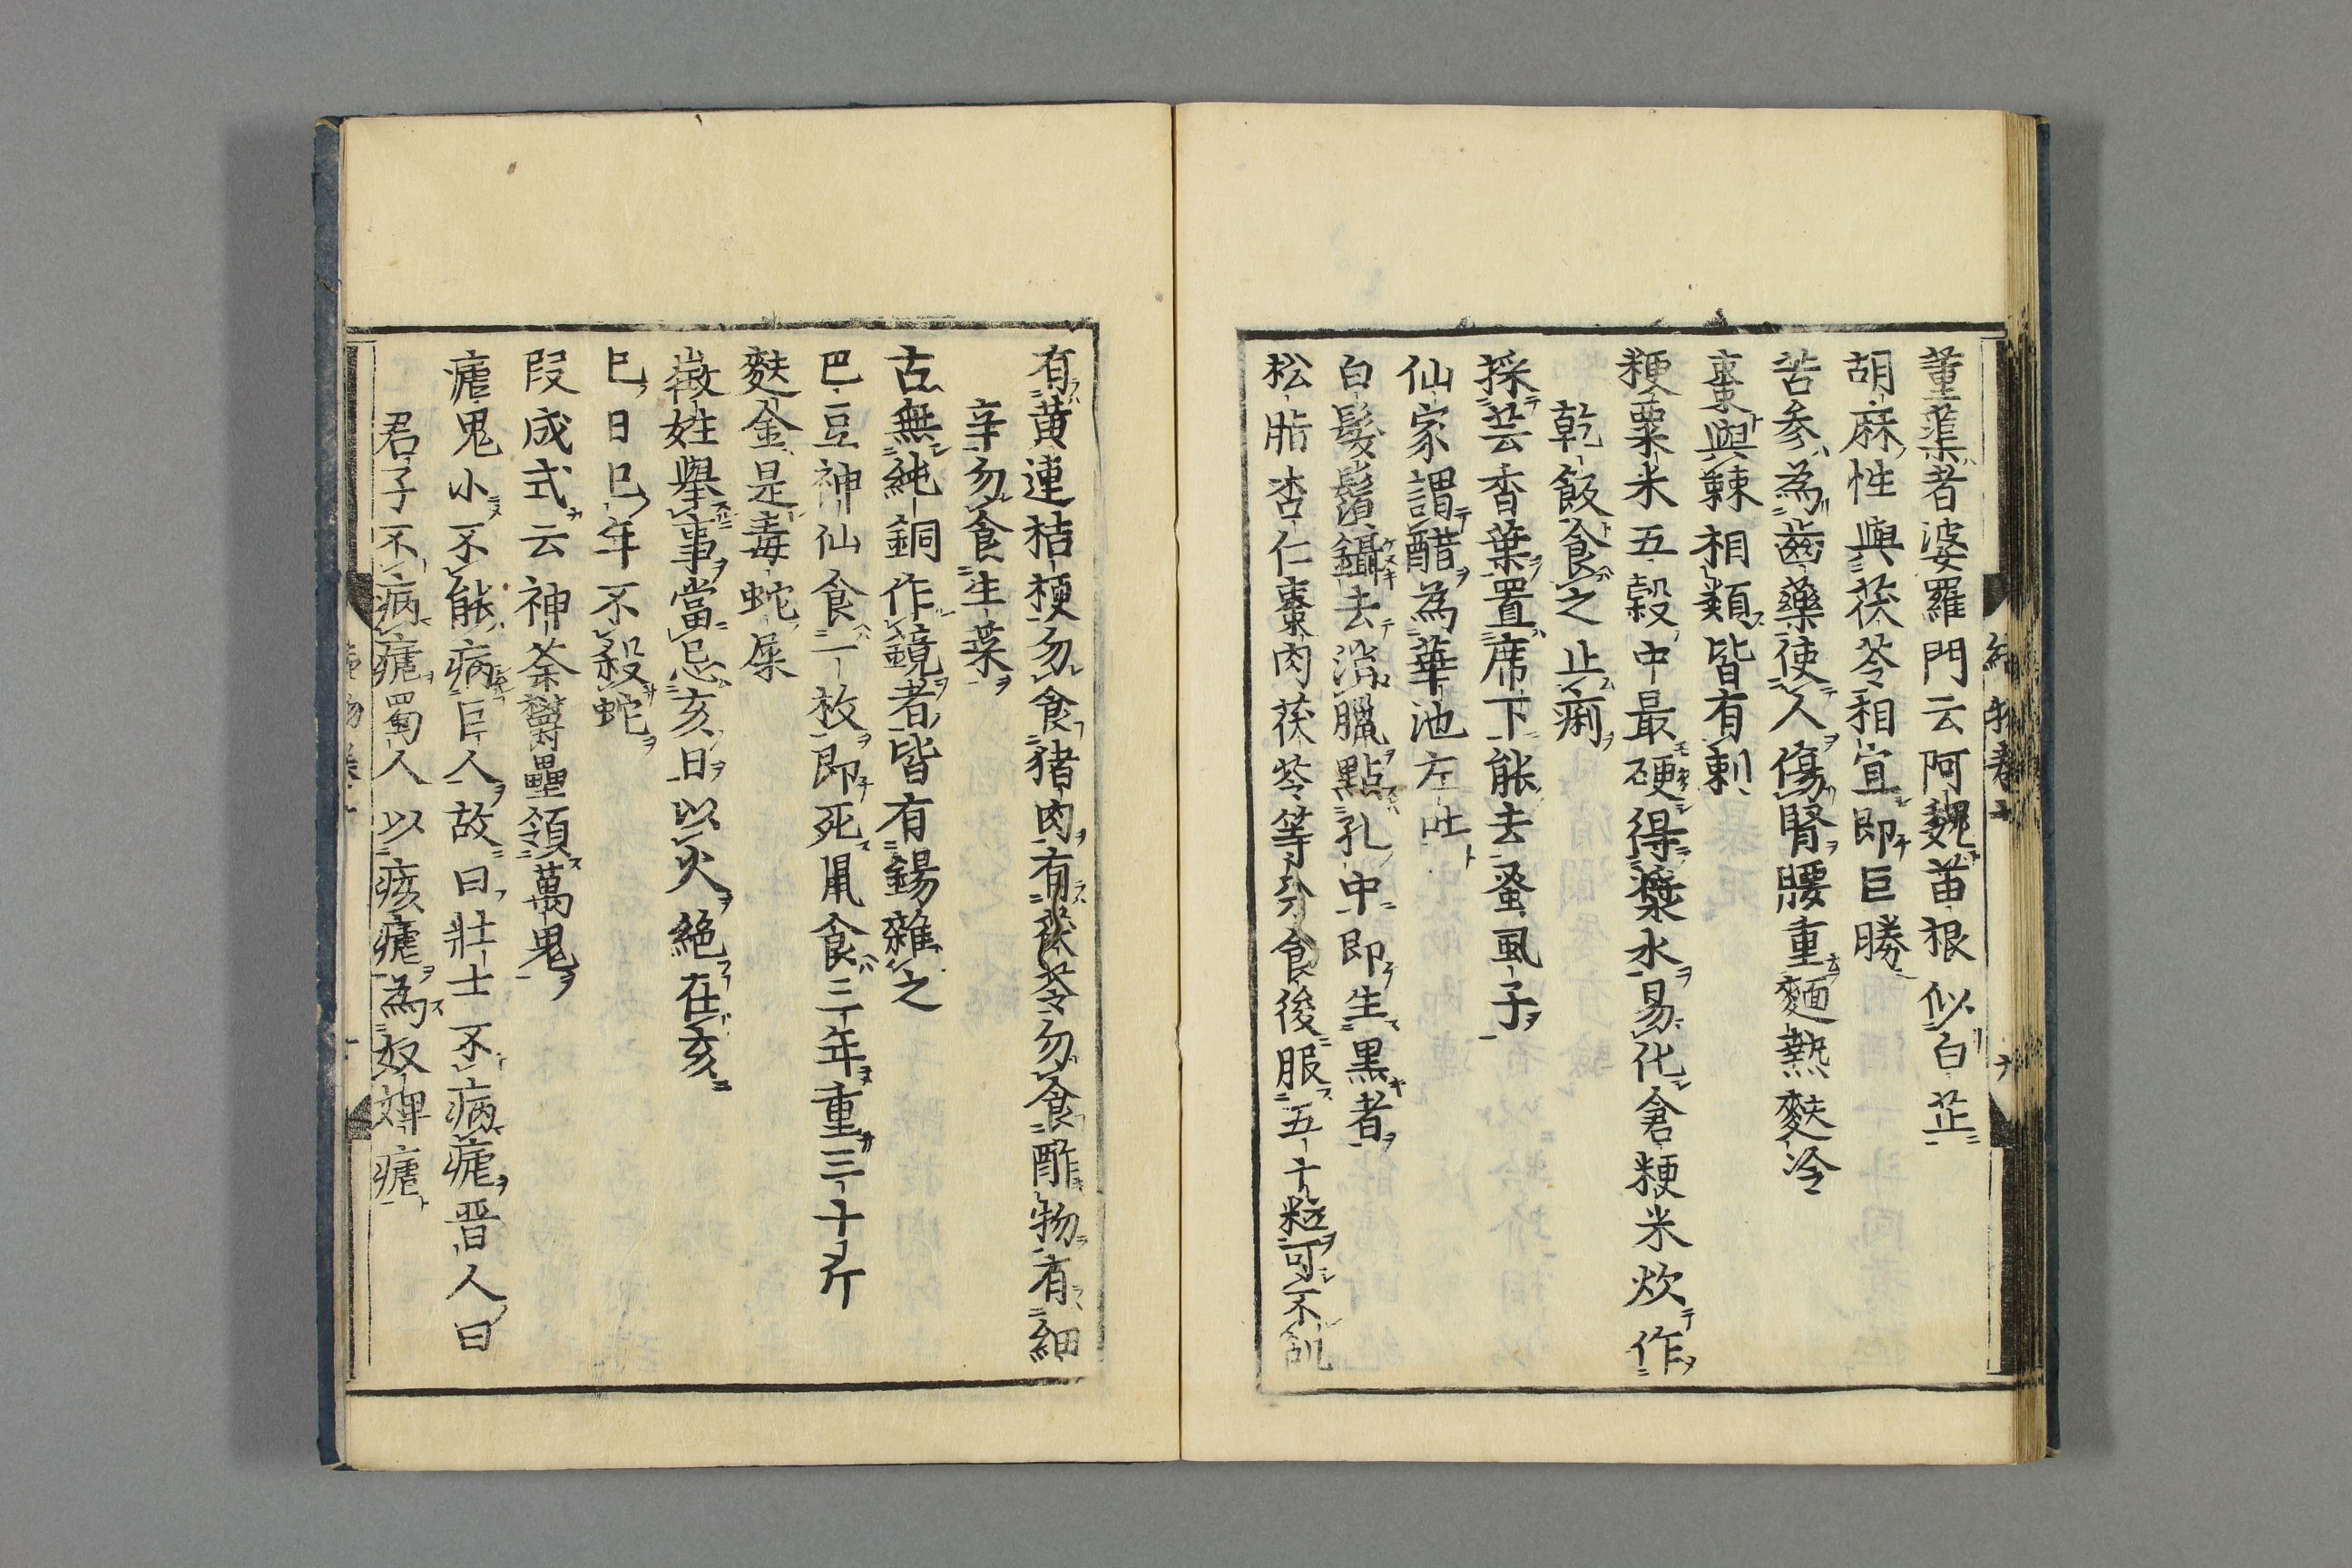 薫蕖者婆羅門云阿魏苗根似白芷
胡麻性與茯苓相宜即巨勝
苦参為齒藥使人傷腎腰重麵熱麩冷
棗與棘相類皆有刺
粳粟米五穀中最硬得漿水易化倉粳米炊作
乾飯食之止痢
採芸香葉置席下能去蚤虱子
仙家謂醋為華池左吐
白髮鬚鑷去消臘點孔中即生黒者
松脂杏仁棗肉茯苓等分食後服五十粒可不飢
有黄連桔梗勿食猪肉有茯苓勿食酢物有細
辛勿食生菜
古無純銅作鏡者皆有錫雜之
巴豆神仙食一枚即死鼠食三年重三十斤
麩金是毒蛇屎
徴姓舉事當忌亥日以火絶在亥
巳日巳年不殺蛇
段成式云神荼欝壘領萬鬼
瘧鬼小不能病巨人故曰壯士不病瘧晋人曰
君子不病瘧蜀人以痎瘧為奴婢瘧